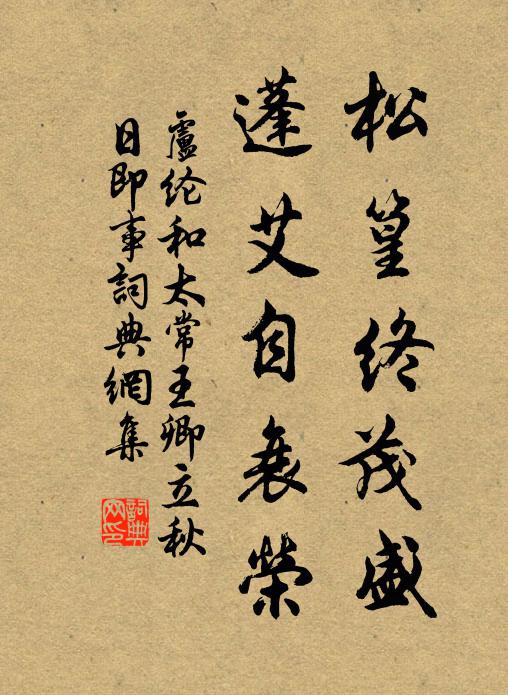 松篁終茂盛
蓬艾自衰榮
盧纶和太常王卿立秋
日即事詞典網集
詞典
网印